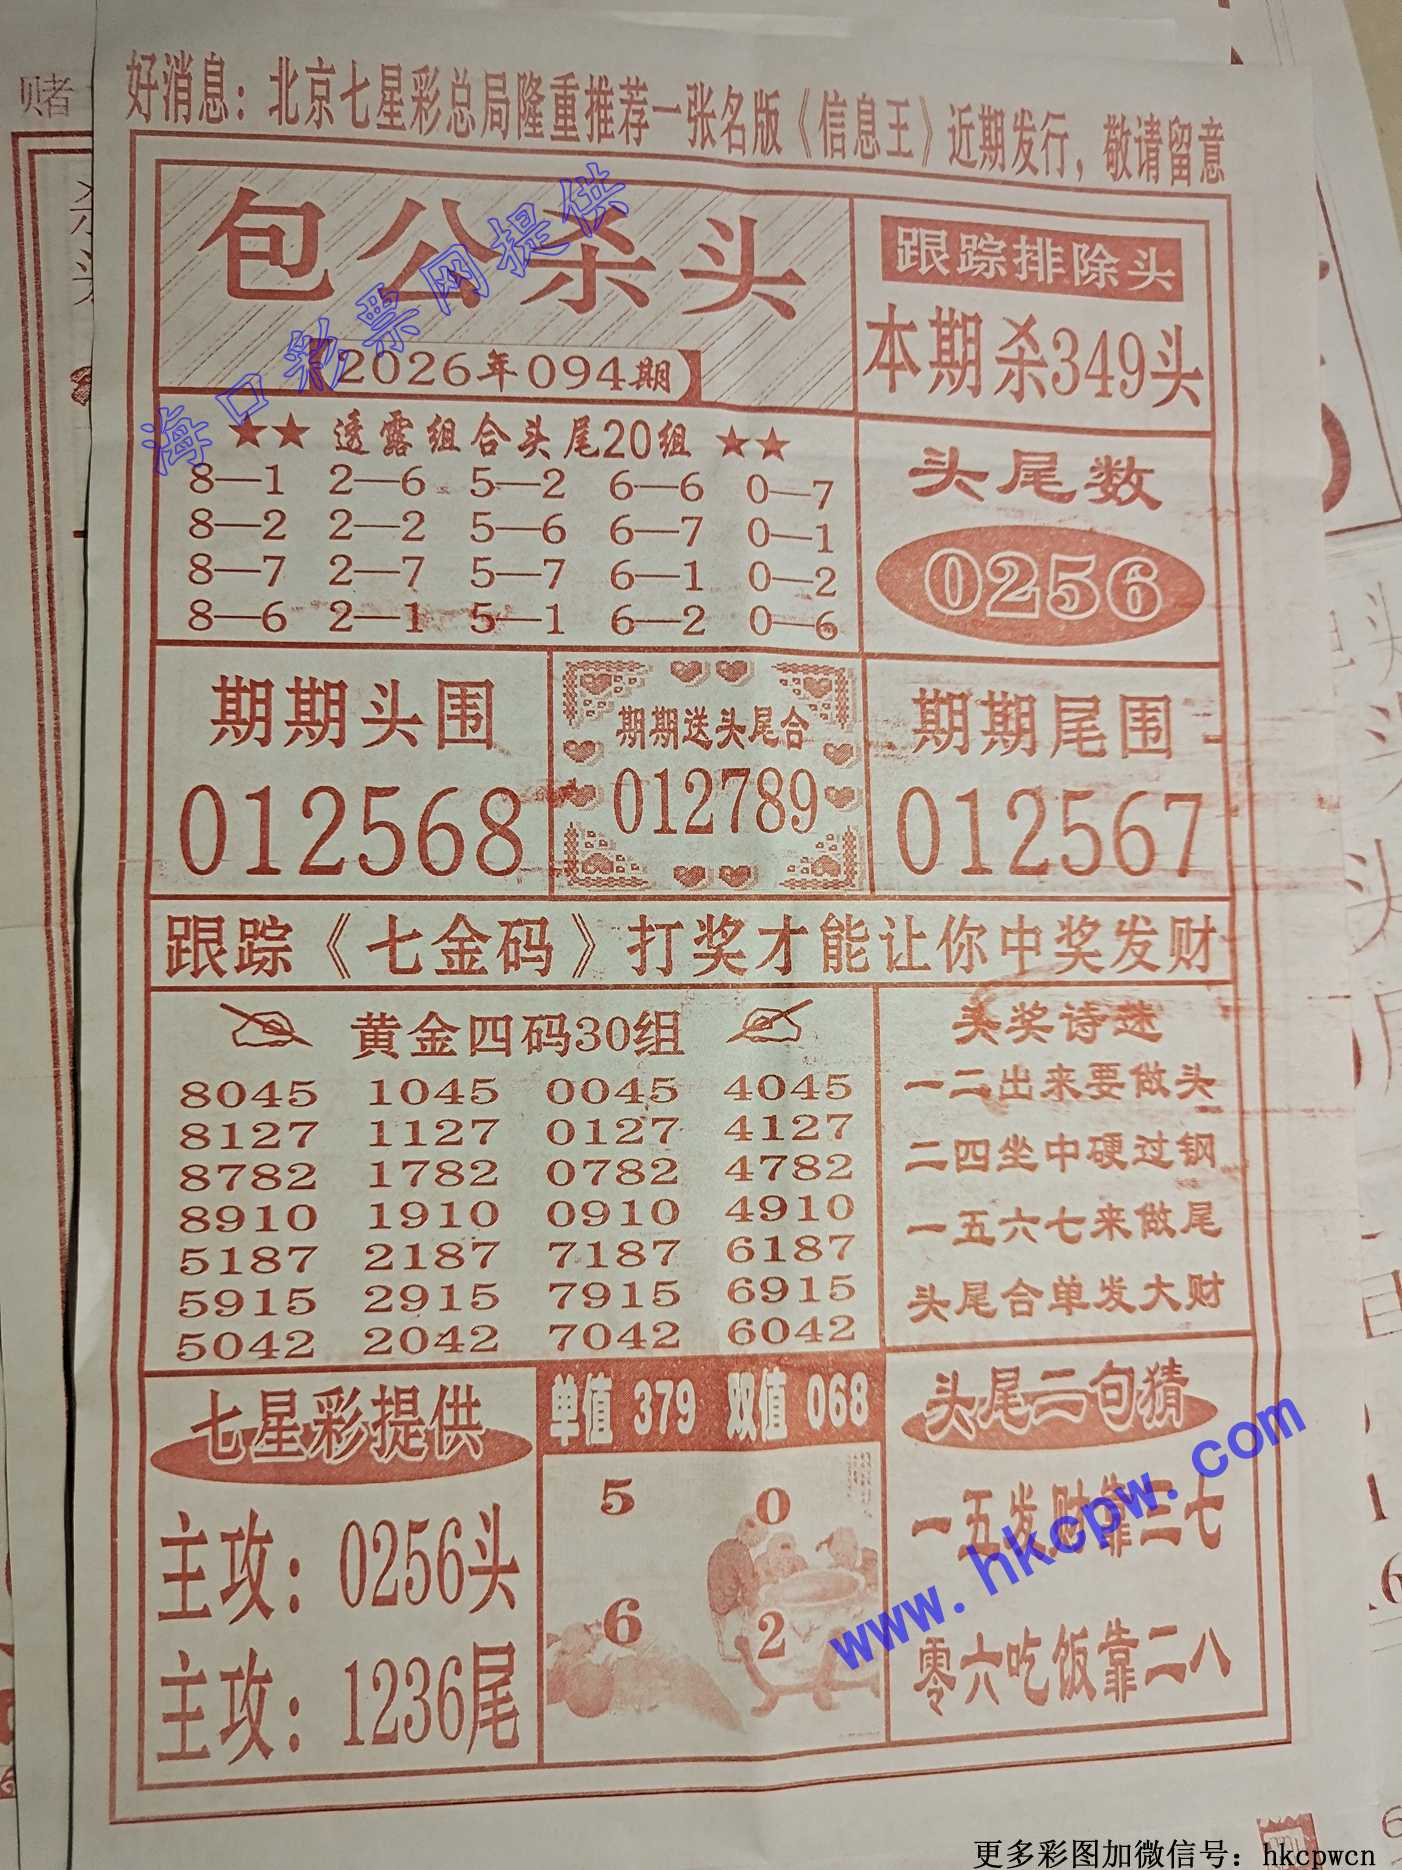 好消息：北京七星彩总局隆重推荐一张名版《信息王》近期发行，敬请留意
包公杀头
【2026年094期】
跟踪排除头
本期杀349头
★★ 透露组合头尾20组 ★★
8—1 2—6 5—2 6—6 0—7
8—2 2—2 5—6 6—7 0—1
8—7 2—7 5—7 6—1 0—2
8—6 2—1 5—1 6—2 0—6
头尾数
0256
期期头围
012568
期期送头尾合
012789
期期尾围
012567
跟踪《七金码》打奖才能让你中奖发财
黄金四码30组
8045 1045 0045 4045
8127 1127 0127 4127
8782 1782 0782 4782
8910 1910 0910 4910
5187 2187 7187 6187
5915 2915 7915 6915
5042 2042 7042 6042
头奖诗迷
一二出来要做头
二四坐中硬过钢
一五六七来做尾
头尾合单发大财
七星彩提供
主攻：0256头
主攻：1236尾
单值 379 双值 068
5 0
6 2
头尾二句猜
一五发财靠三七
零六吃饭靠二八
海口彩票网提供
www.hkcpw.com
更多彩图加微信号：hkcpwcn